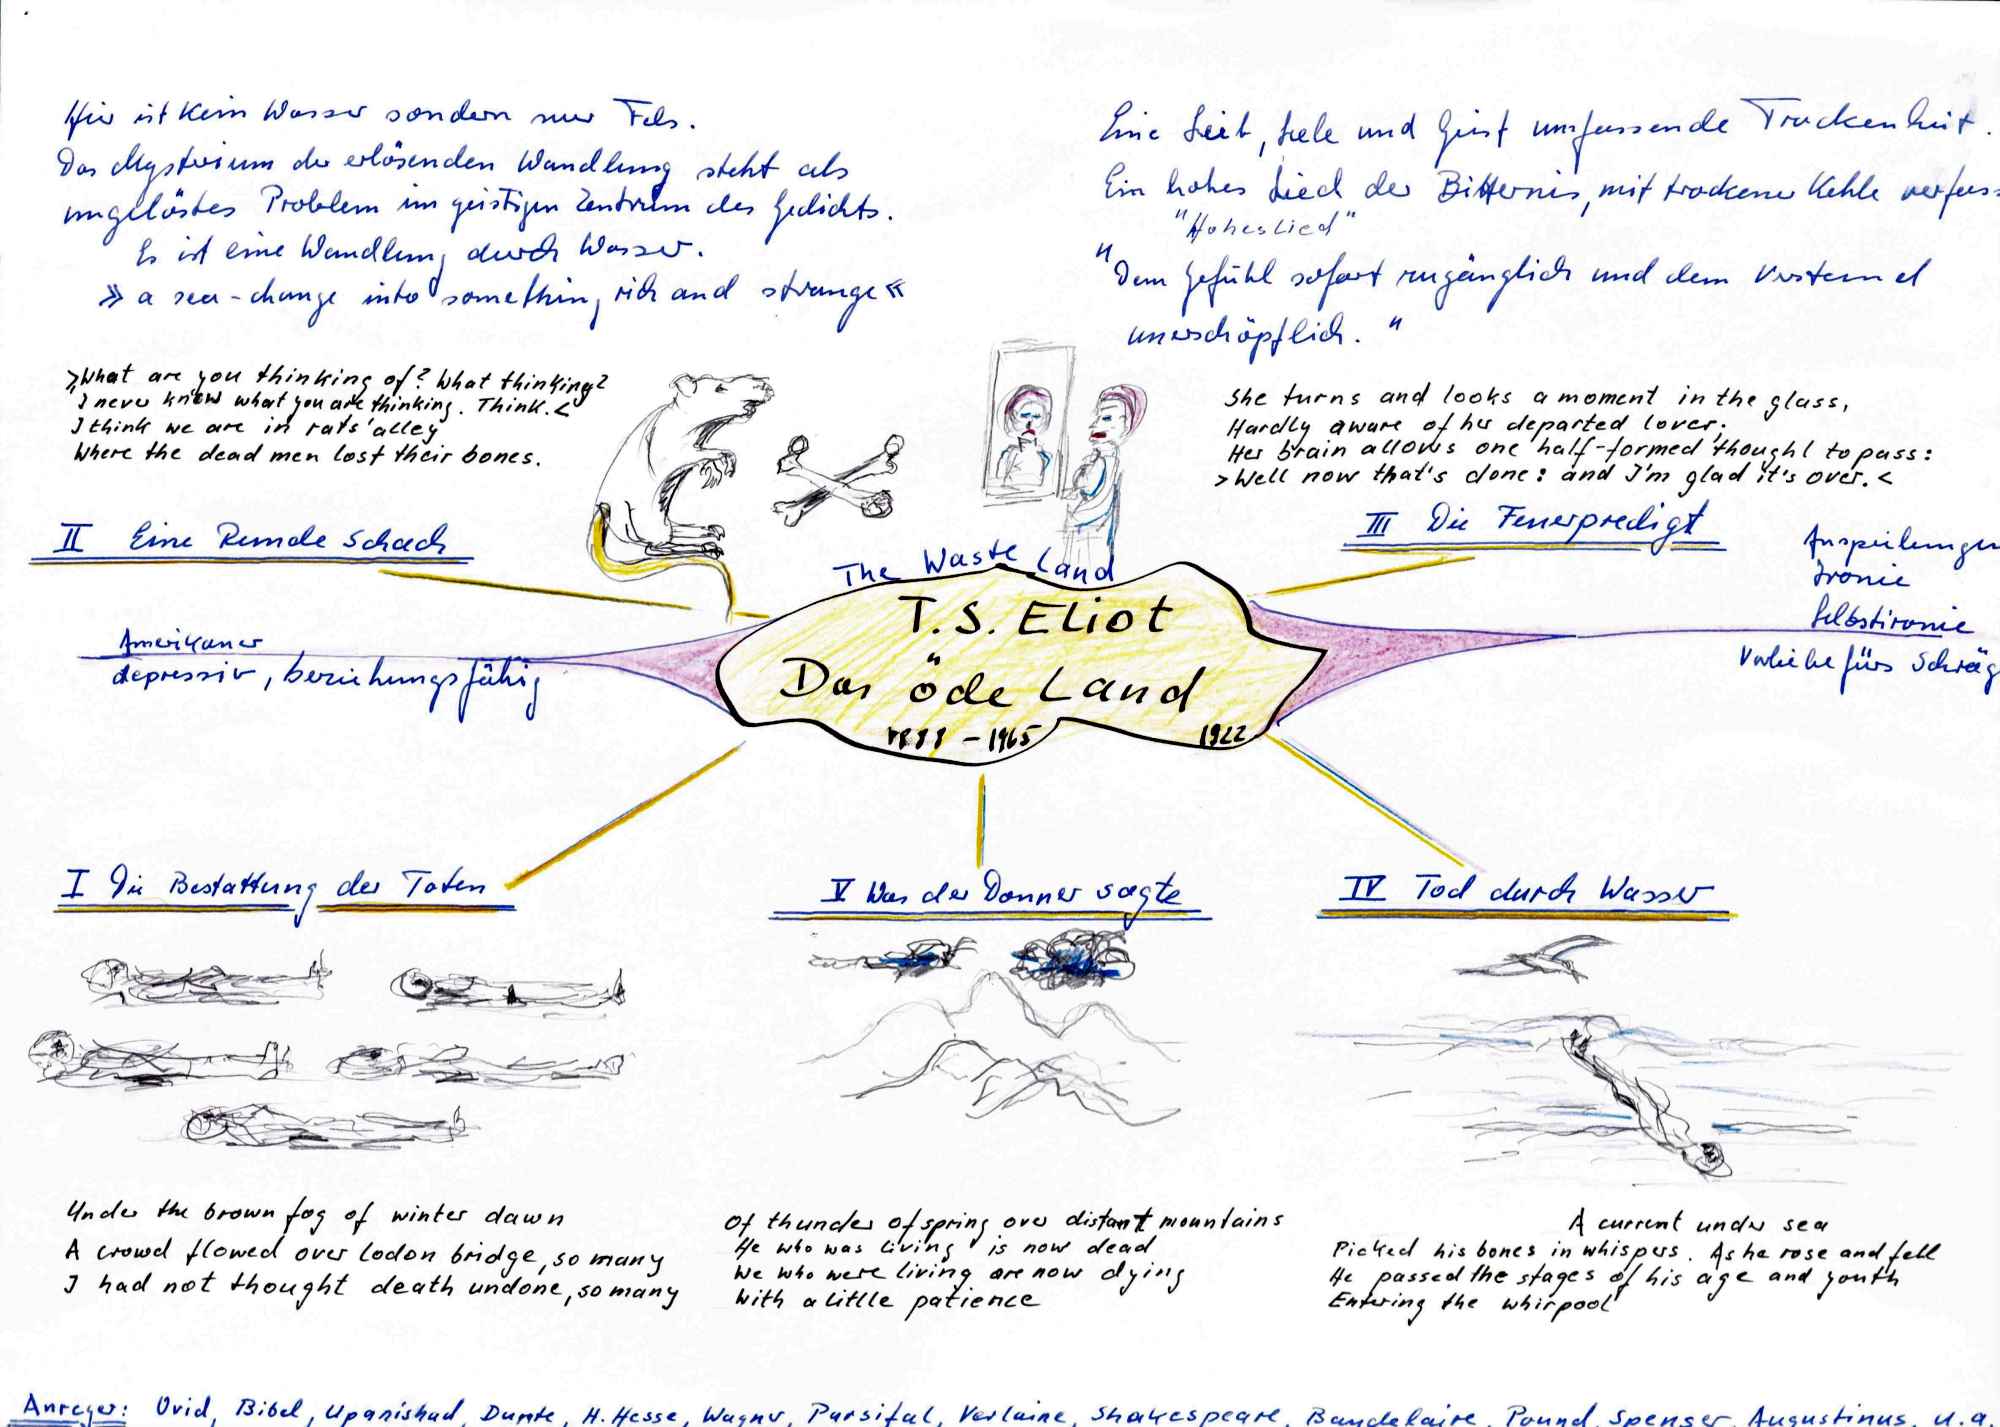 Hier ist kein Wasser sondern nur Fels.
Das Mysterium der erlösenden Wandlung steht als
ungelöstes Problem im geistigen Zentrum des Gedichts.
Es ist eine Wandlung durch Wasser.
» a sea-change into something rich and strange «
Eine Leib, Seele und Geist umfassende Trockenheit.
Ein hohes Lied der Bitternis, mit trockener Kehle verfass
"Hoheslied"
"Dem Gefühl sofort zugänglich und dem Verstand
unerschöpflich."
>What are you thinking of? What thinking?
I never know what you are thinking. Think.<
I think we are in rats' alley
Where the dead men lost their bones.
She turns and looks a moment in the glass,
Hardly aware of her departed lover;
Her brain allows one half-formed thought to pass:
>Well now that's done: and I'm glad it's over.<
II Eine Runde Schach
III Die Feuerpredigt
Anspielungen
Ironie
Selbstironie
Vorliebe fürs Schräg
Amerikaner
depressiv, beziehungsfähig
The Waste Land
T.S. Eliot
Das öde Land
1888 - 1965
1922
I Die Bestattung der Toten
V Was der Donner sagte
IV Tod durch Wasser
Under the brown fog of winter dawn
A crowd flowed over Lodon bridge, so many
I had not thought death undone, so many
Of thunder of spring over distant mountains
He who was living is now dead
We who were living are now dying
With a little patience
A current under sea
Picked his bones in whispers. As he rose and fell
He passed the stages of his age and youth
Entering the whirpool
Anreger: Ovid, Bibel, Upanishad, Dante, H. Hesse, Wagner, Parsifal, Verlaine, Shakespeare, Baudelaire, Pound, Spenser, Augustinus, u.a.